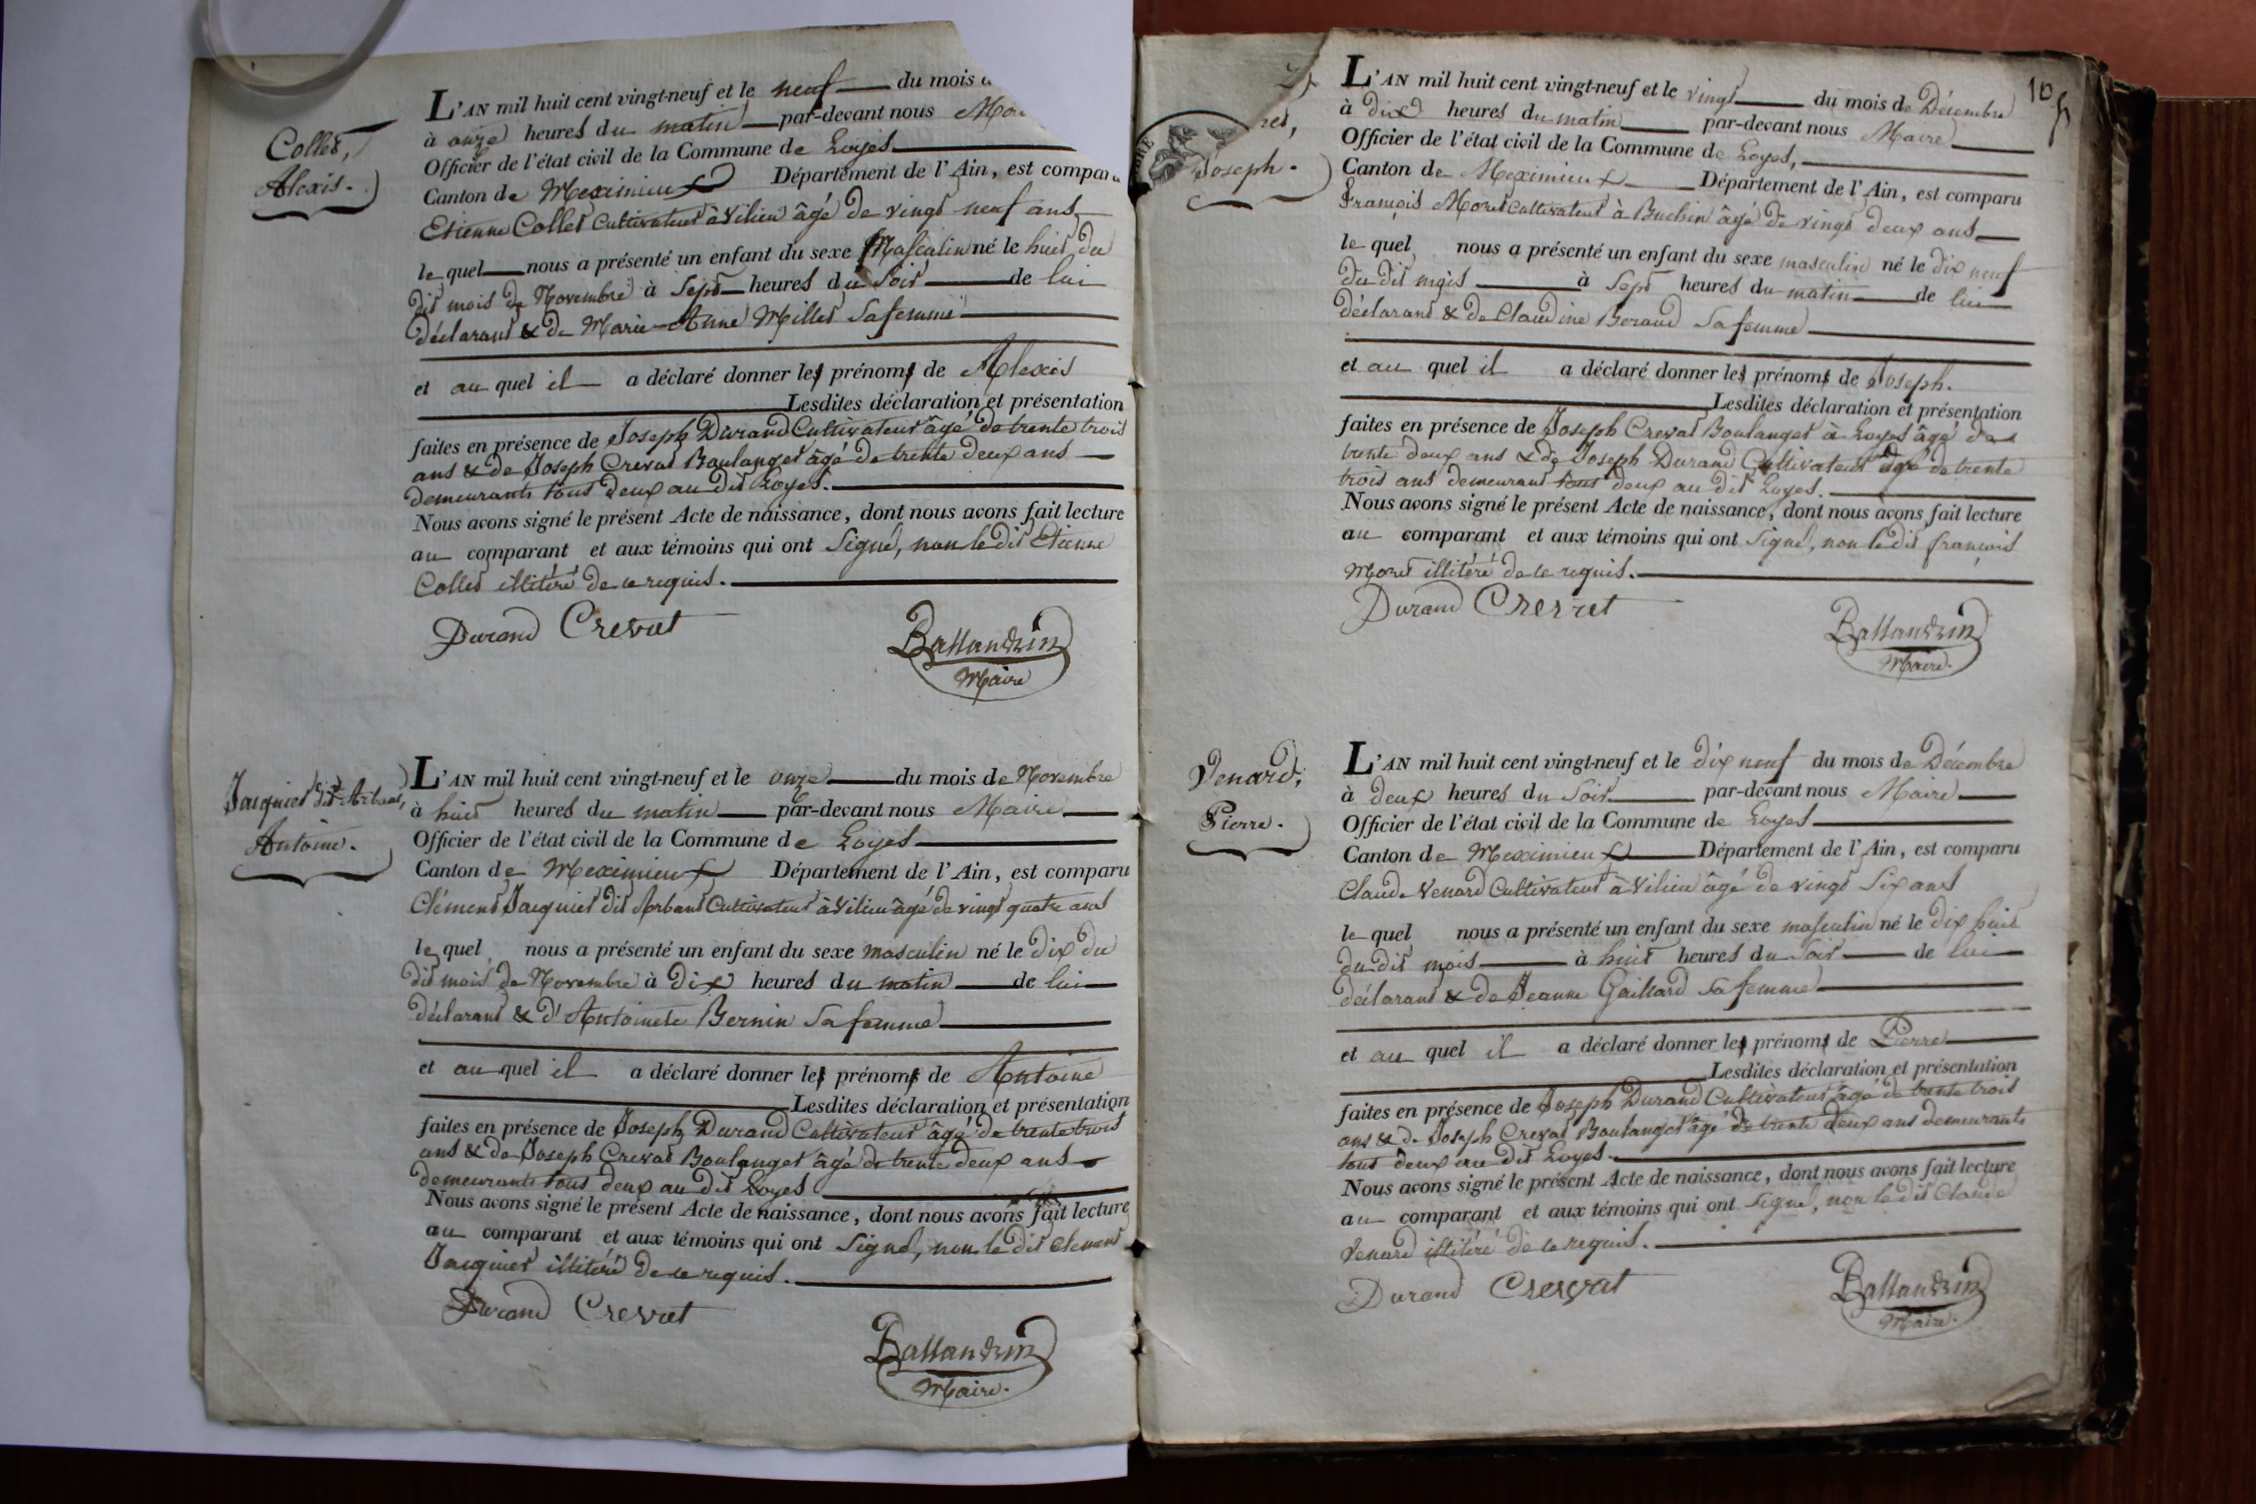 Collet,
Alexis.
L'AN mil huit cent vingt-neuf et le neuf du mois d
à onze heures du matin par-devant nous Mai
Officier de l'état civil de la Commune de Loyes
Canton de Meximieux Département de l'Ain, est compar
Etienne Collet Cultivateur à Vilieu âgé de vingt neuf ans
le quel nous a présenté un enfant du sexe Masculin né le huit du
dit mois de Novembre à Sept heures du Soir de lui
déclarant & de Marie-Anne Millet Sa femme
et au quel il a déclaré donner les prénoms de Alexis
Lesdites déclaration et présentation
faites en présence de Joseph Durand Cultivateur âgé de trente trois
ans & de Joseph Crevat Boulanger âgé de trente deux ans
demeurants tous deux au dit Loyes.
Nous avons signé le présent Acte de naissance, dont nous avons fait lecture
au comparant et aux témoins qui ont Signé, non le dit Etienne
Collet illitéré de ce requis.
Durand Crevat
Ballandrin
Maire
Jacquier dit Arband,
Antoine.
L'AN mil huit cent vingt-neuf et le onze du mois de Novembre
à huit heures du matin par-devant nous Maire
Officier de l'état civil de la Commune de Loyes
Canton de Meximieux Département de l'Ain, est comparu
Clément Jacquier dit Arband Cultivateur à Vilieu âgé de vingt quatre ans
le quel nous a présenté un enfant du sexe masculin né le dix du
dit mois de Novembre à dix heures du matin de lui
déclarant & d'Antoinete Bernin Sa femme
et au quel il a déclaré donner les prénoms de Antoine
Lesdites déclaration et présentation
faites en présence de Joseph Durand Cultivateur âgé de trente trois
ans & de Joseph Crevat Boulanger âgé de trente deux ans
demeurants tous deux au dit Loyes
Nous avons signé le présent Acte de naissance, dont nous avons fait lecture
au comparant et aux témoins qui ont Signé, non le dit Clément
Jacquier illitéré de ce requis.
Durand Crevat
Ballandrin
Maire.
10
ret,
Joseph.
L'AN mil huit cent vingt-neuf et le vingt du mois de Décembre
à dix heures du matin par-devant nous Maire
Officier de l'état civil de la Commune de Loyes,
Canton de Meximieux Département de l'Ain, est comparu
François Moret Cultivateur à Buchin âgé de vingt deux ans
le quel nous a présenté un enfant du sexe masculin né le dix neuf
du dit mois à Sept heures du matin de lui
déclarant & de Claudine Beraud Sa femme
et au quel il a déclaré donner les prénoms de Joseph.
Lesdites déclaration et présentation
faites en présence de Joseph Crevat Boulanger à Loyes âgé de
trente deux ans & de Joseph Durand Cultivateur âgé de trente
trois ans demeurant tous deux au dit Loyes.
Nous avons signé le présent Acte de naissance, dont nous avons fait lecture
au comparant et aux témoins qui ont Signé, non le dit françois
Moret illitéré de ce requis.
Durand Crevat
Ballandrin
Maire.
Venard,
Pierre.
L'AN mil huit cent vingt-neuf et le dix neuf du mois de Décembre
à deux heures du Soir par-devant nous Maire
Officier de l'état civil de la Commune de Loyes
Canton de Meximieux Département de l'Ain, est comparu
Claude Venard Cultivateur à Vilieu âgé de vingt Six ans
le quel nous a présenté un enfant du sexe masculin né le dix huit
du dit mois à huit heures du Soir de lui
déclarant & de Jeanne Gaillard Sa femme
et au quel il a déclaré donner les prénoms de Pierre
Lesdites déclaration et présentation
faites en présence de Joseph Durand Cultivateur âgé de trente trois
ans & de Joseph Crevat Boulanger âgé de trente deux ans demeurants
tous deux au dit Loyes.
Nous avons signé le présent Acte de naissance, dont nous avons fait lecture
au comparant et aux témoins qui ont Signé, non le dit Claude
Venard illitéré de ce requis.
Durand Crevat
Ballandrin
Maire.